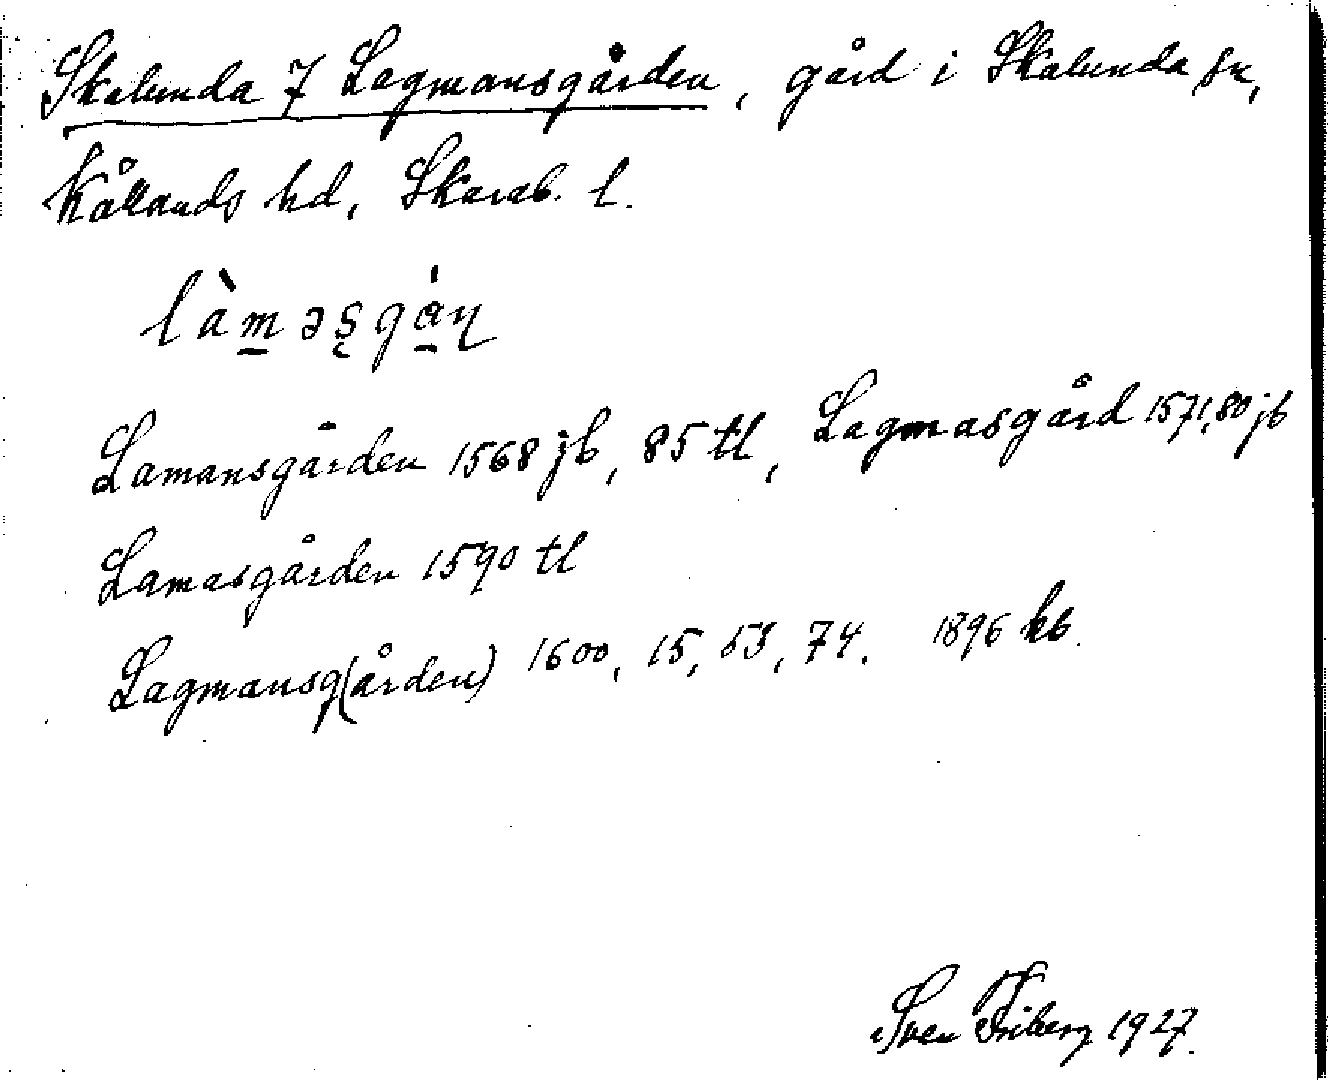 Skalunda 7 Lagmansgården, gård i Skalunda sn,
Kållands hd, Skarab. l.
làməʂgȧ́ɳ
Lamansgården 1568 jb, 85 tl, Lagmasgård 1571, 80 jb
Lamasgården 1590 tl
Lagmansg(ården) 1600, 15, 53, 74. 1896 kb.
Sven Friberg 1927.